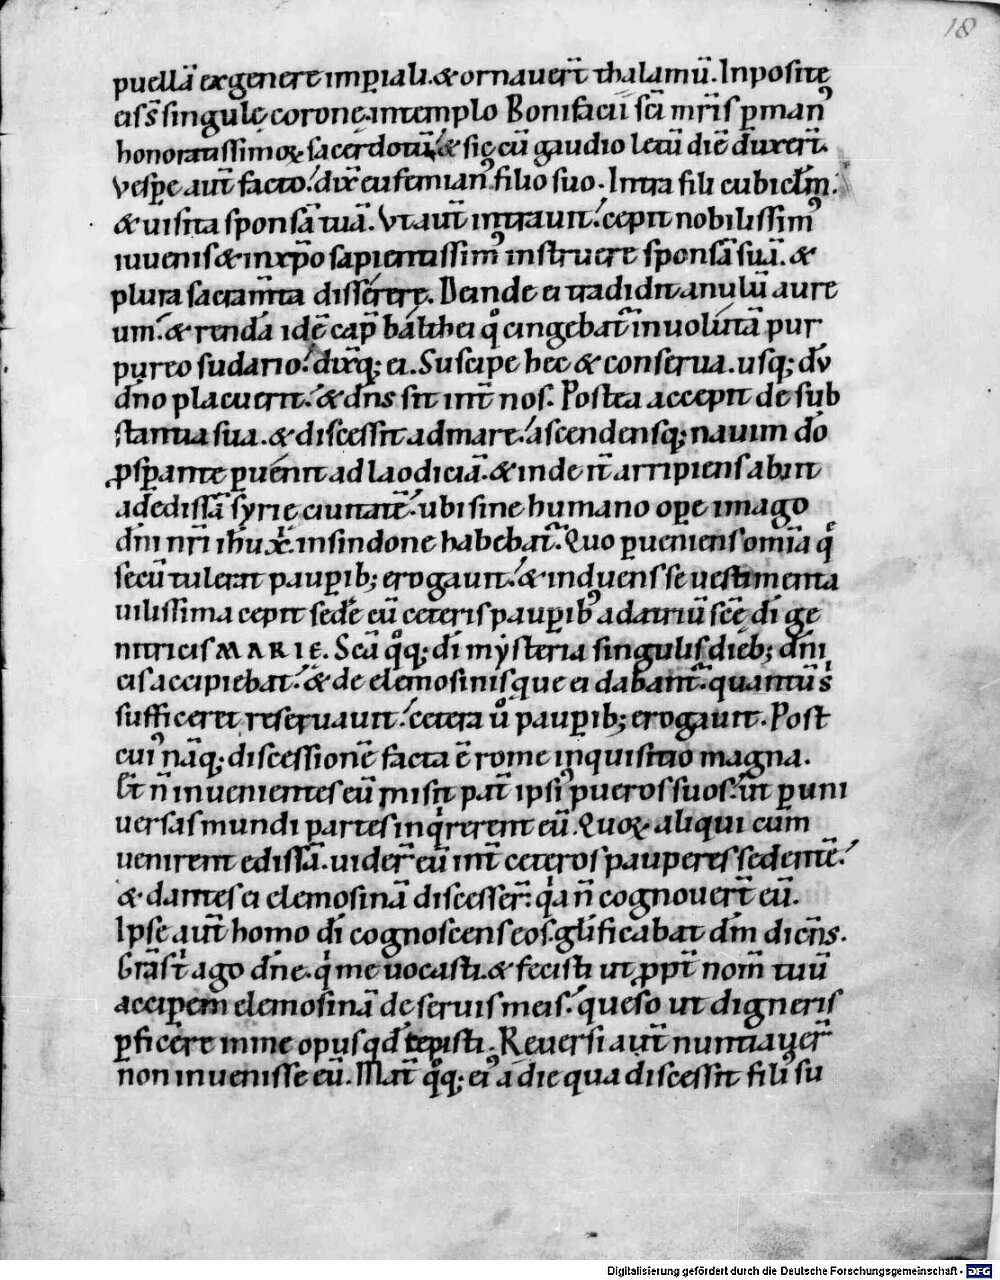 18
puellā ex genere imꝑiali. & ornauer̄t thalamū. Inposite
eis s̄ singulę coronę in templo Bonifacii sc̄i mr̄is ꝑ man᷒
honoratissimoꝝ sacerdotū. & sic cū gaudio letū diē duxer̄t.
Vesꝑe aut̄ facto. dix̄ eufemian᷒ filio suo. Intra fili cubiclm̄.
& uisita sponsā tuā. Vt aut̄ intrauit. cepit nobilissim᷒
iuuenis & in xp̄o sapientissim᷒ instruere sponsā suā. &
plura sacram̄ta disserere. Deinde ei tradidit anulū aure
um. & rendā idē cap̄ balthei qͦ cingebat᷑ inuolutā pur
pureo sudario. dixq; ei. Suscipe hec & conserua. usq; dū
dn̄o placuerit. & dn̄s sit int̄ nos. Postea accepit de sub
stantia sua. & discessit ad mare. ascendensq; nauim dō
ꝓsꝑante ꝑuenit ad laodiciā. & inde it̄ arripiens abiit
ad edissā syrię ciuitatē. ubi sine humano oꝑe imago
dn̄i nr̄i ih̄u xp̄i in sindone habebat᷑. Quo ꝑueniens omīa qͦ
secū tulerat pauꝑib; erogauit. & induens se uestimenta
uilissima cepit sedēre cū ceteris pauꝑib᷒ ad atriū scę̄ di ge
nitricis MARIE. Scā qͦq; di mẏsteria singulis dieb; dn̄i
cis accipiebat. & de elemosinis que ei dabant᷑. quantū s̄
sufficeret reseruauit. cetera ū pauꝑib; erogauit. Post
cui᷒ nāq; discessionē facta ē rome inquisitio magna.
Et n̄ inuenientes eū misit pat̄ ipsi᷒ pueros suos. ut ꝑ uni
uersas mundi partes inqͥrerent eū. Quoꝝ aliqui cum
uenirent edissā. uider̄ eū int̄ ceteros pauperes sedentē.
& dantes ei elemosinā discesser̄. qͥa n̄ cognouer̄t eū.
Ipse aut̄ homo dī cognoscens eos. glīficabat dm̄ dicn̄s.
Grās t̄ ago dn̄e. qͥ me uocasti. & fecisti ut ꝓpt̄ nom̄ tuū
acciꝑem elemosinā de seruis meis. queso ut digneris
ꝑficere in me opus qd̄ cepisti. Reuersi aut̄ nuntiauer̄
non inuenisse eū. Mat̄ qͦq; ei᷒ a die qua discessit fili᷒ su
Digitalisierung gefördert durch die Deutsche Forschungsgemeinschaft - DFG